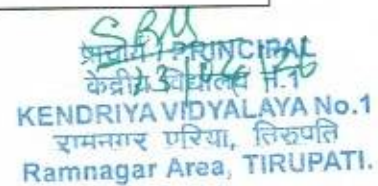 प्राचार्य / PRINCIPAL
केंद्रीय विद्यालय नं.1
KENDRIYA VIDYALAYA No.1
रामनगर एरिया, तिरुपति
Ramnagar Area, TIRUPATI.